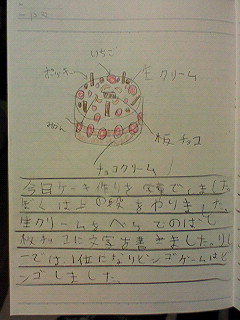 いちご
ポッキー
生クリーム
板チョコ
チョコクリーム
今日ケーキ作りを でしました。
ぼくは上の段をやりました。
生クリームをへらでのばして
板チョコに文字古書きました。リレ
ーでは1位になりビンゴゲームはビ
ンゴしました。